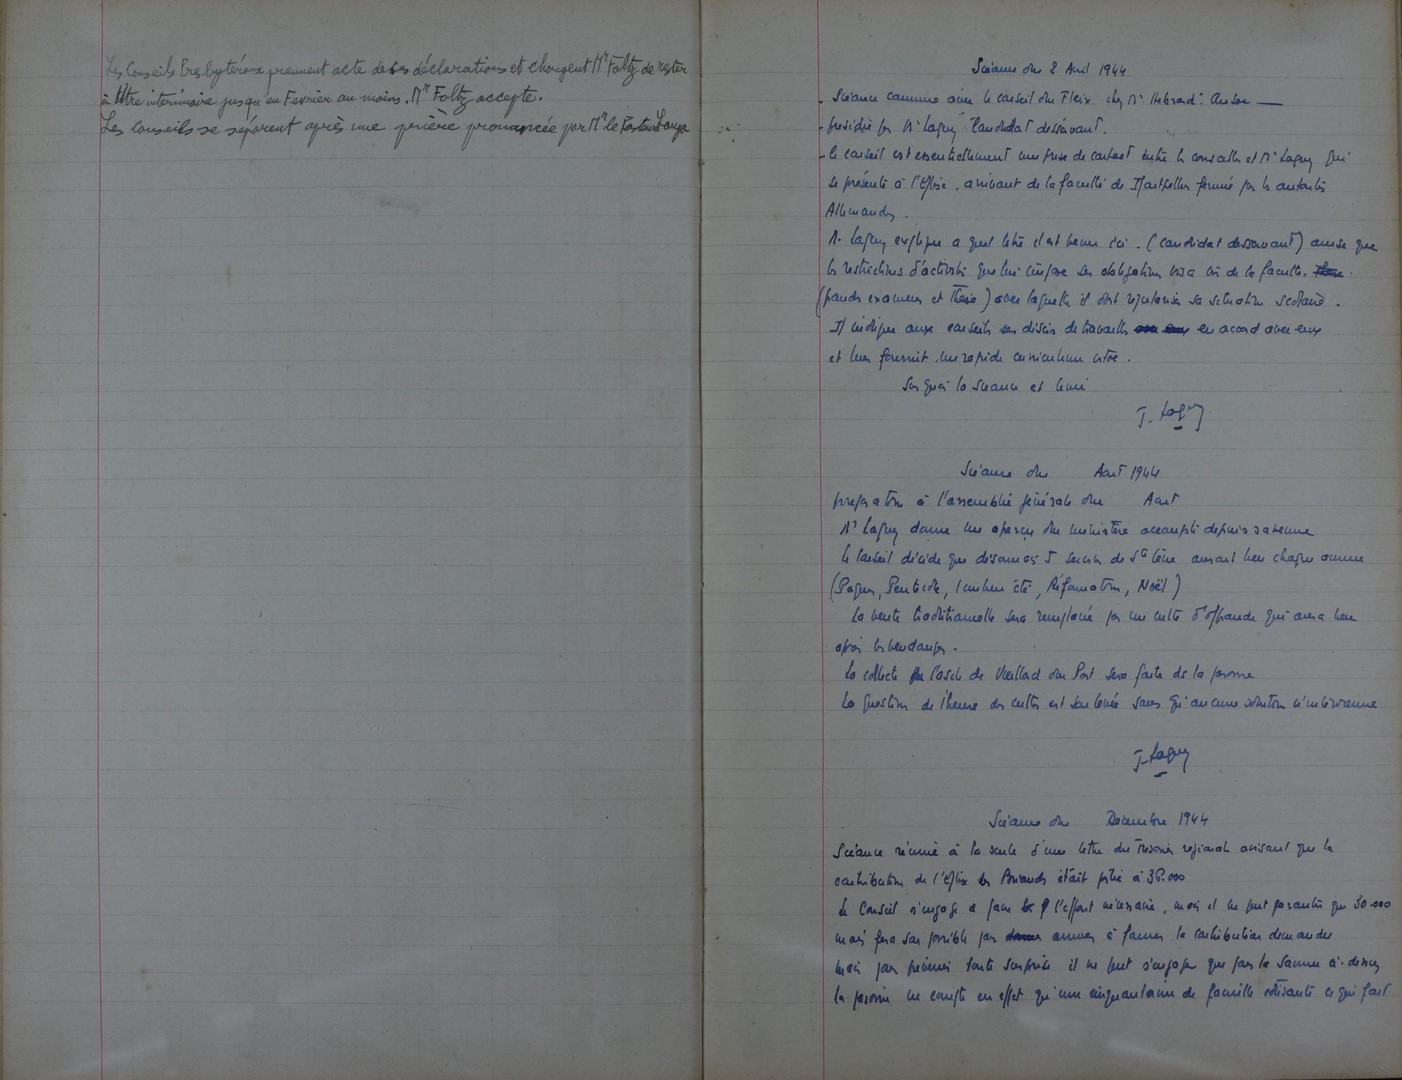 Les Conseils Presbytéraux prennent acte de ces déclarations et chargent Mr Foltz de rester
à titre intérimaire jusqu'en Fevrier au moins. Mr Foltz accepte.
Les conseils se séparent après une prière prononcée par Mr le Pasteur
Séance du 2 Avril 1944
- Séance commune avec le conseil du Fleix chez Mr Hebrard
- présidée par Mr Laguy Candidat desservant.
- Le conseil est essentiellement une prise de contact entre les conseils et Mr Laguy qui
se présente à l'Eglise, arrivant de la faculté de Montpellier fermée par les autorités
Allemandes.
Mr Laguy explique a quel titre il est venu ici. (candidat desservant) ainsi que
les restrictions d'activité que lui impose ses obligations vis a vis de la faculté.
(grands examens et thèse) avec laquelle il doit régulariser sa situation scolaire.
Il indique aux conseils ses désirs de travailler en accord avec eux
et leur fournit un rapide curriculum vitae.
Sur quoi la séance est levée
J. Laguy
Séance du Aout 1944
préparation à l'assemblée générale du Aout
Mr Laguy donne un aperçu du ministère accompli depuis sa venue
Le Conseil décide que désormais 5 services de Ste Cène auront lieu chaque année
(Paques, Pentecote, été, Réformation, Noël)
La vente traditionnelle sera remplacée par un culte d'offrande qui aura lieu
après les vendanges.
La collecte l'asile de Vieillard du Port sera faite ds la paroisse
La question de l'heure des cultes est soulevée sans qu'aucune solution n'intervienne
J. Laguy
Séance du Decembre 1944
Séance réunie à la suite d'une lettre du Trésorier régional avisant que la
contribution de l'Eglise des était fixée à 36.000
Le Conseil s'engage a faire l'effort nécessaire, mais il ne peut garantir que 30.000
mais fera son possible pour arriver à fournir la contribution demandée
mais pour prévenir toute surprise il ne peut s'engager que pour la somme ci-dessus
la paroisse ne compte en effet qu'une cinquantaine de famille cotisante ce qui fait